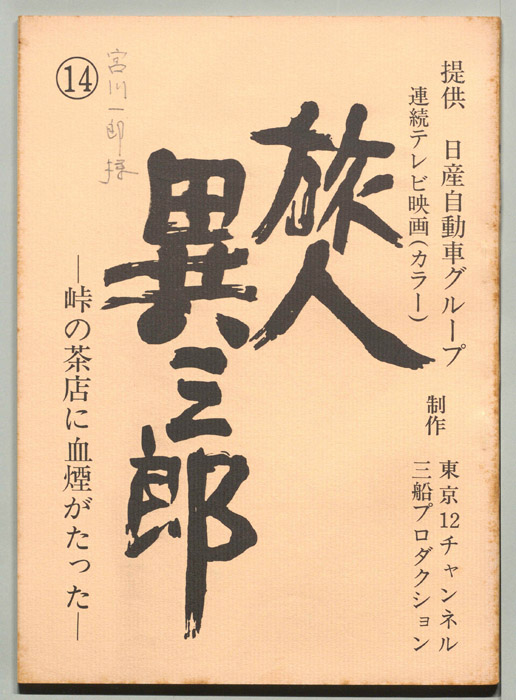 提供　日産自動車グループ
連続テレビ映画(カラー)
制作
東京12チャンネル
三船プロダクション
旅人
異三郎
⑭
宮川一郎様
―峠の茶店に血煙がたった―